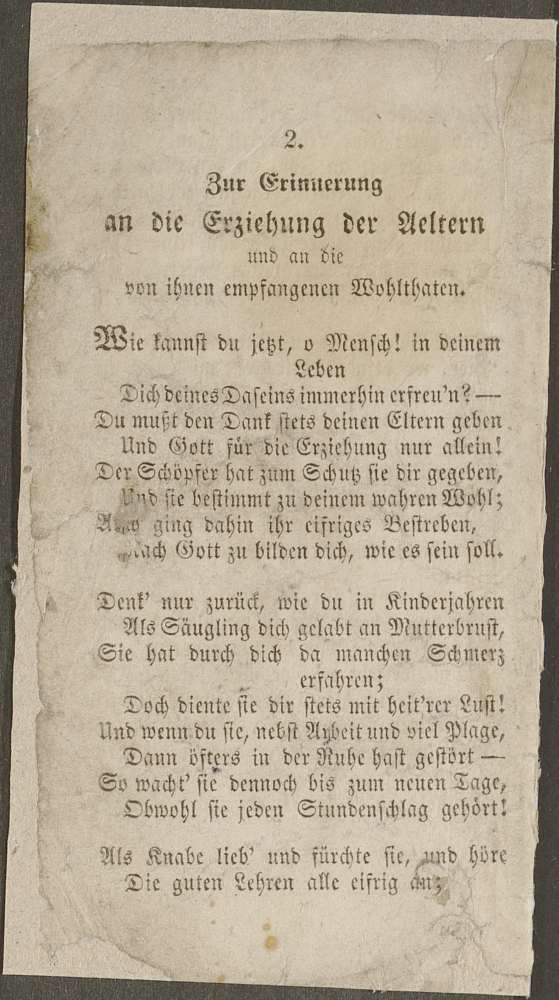 2.
Zur Erinnerung
an die Erziehung der Aeltern
und an die
von ihnen empfangenen Wohlthaten.
Wie kannst du jetzt, o Mensch! in deinem
Leben
Dich deines Daseins immerhin erfreu'n? —
Du mußt den Dank stets deinen Eltern geben
Und Gott für die Erziehung nur allein!
Der Schöpfer hat zum Schutz sie dir gegeben,
Und sie bestimmt zu deinem wahren Wohl;
ging dahin ihr eifriges Bestreben,
Nach Gott zu bilden dich, wie es sein soll.
Denk' nur zurück, wie du in Kinderjahren
Als Säugling dich gelabt an Mutterbrust,
Sie hat durch dich da manchen Schmerz
erfahren;
Doch diente sie dir stets mit heit'rer Lust!
Und wenn du sie, nebst Arbeit und viel Plage,
Dann öfters in der Ruhe hast gestört —
So wacht' sie dennoch bis zum neuen Tage,
Obwohl sie jeden Stundenschlag gehört!
Als Knabe lieb' und fürchte sie, und höre
Die guten Lehren alle eifrig an;